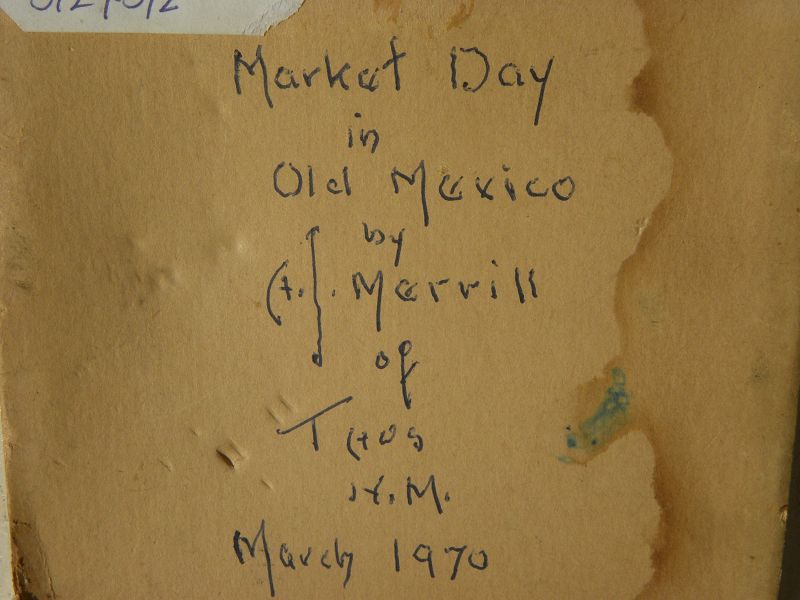 Market Day
in
Old Mexico
by
A. J. Merrill
of
Taos
N.M.
March 1970